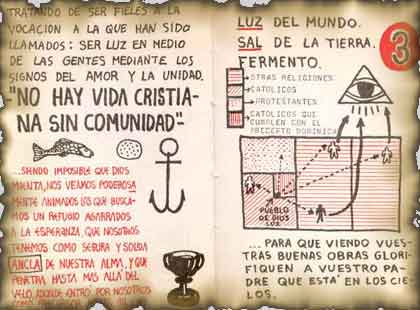 TRATANDO DE SER FIELES A LA
VOCACION A LA QUE HAN SIDO
LLAMADOS: SER LUZ EN MEDIO
DE LAS GENTES MEDIANTE LOS
SIGNOS DEL AMOR Y LA UNIDAD.
"NO HAY VIDA CRISTIA-
NA SIN COMUNIDAD".
...SIENDO IMPOSIBLE QUE DIOS
MIENTA, NOS VEAMOS PODEROSA
MENTE ANIMADOS LOS QUE BUSCA-
MOS UN REFUGIO AGARRADOS
A LA ESPERANZA, QUE NOSOTROS
TENEMOS COMO SEGURA Y SOLIDA
ANCLA DE NUESTRA ALMA, Y QUE
PENETRA HASTA MAS ALLÁ DEL
VELO, ADONDE ENTRÓ POR NOSOTROS
LUZ DEL MUNDO.
SAL DE LA TIERRA.
FERMENTO.
3
OTRAS RELIGIONES
CATOLICOS
PROTESTANTES
CATOLICOS QUE
CUMPLEN CON EL
PRECEPTO DOMINICA
PUEBLO
DE DIOS
LUZ
... PARA QUE VIENDO VUES-
TRAS BUENAS OBRAS GLORI-
FIQUEN A VUESTRO PA-
DRE QUE ESTÁ EN LOS CIE-
LOS.